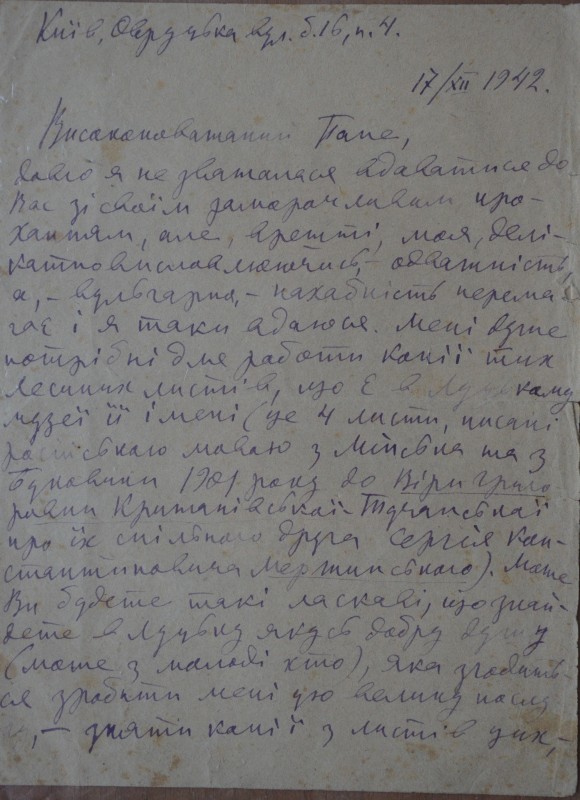 Київ, Овруцька вул. б. 16, п. 4.
17/XII 1942.
Високоповажаний Пане,
довго я не зважалася вдаватися до
Вас зі своїм заморочливим про-
ханням, але, врешті, моя, делі-
катно висловлюючись, - одважність,
а, - вульгарно, - нахабність перема-
гає і я таки вдаюся. Мені дуже
потрібні для работи копії тих
Лесиних листів, що є в Луцькому
музеї її імені (це 4 листи, писані
російською мовою з Мінська та з
Буковини 1901 року до Віри Григо
ровни Крижанівської-Тучапської
про їх спільного друга Сергія Кон-
стантиновича Мержинського). Може
Ви будете такі ласкаві, що знай-
дете в Луцьку якусь добру душу
(може з молоді хто), яка згодить-
ся зробити мені цю велику послу
, - зняти копії з листів цих, -